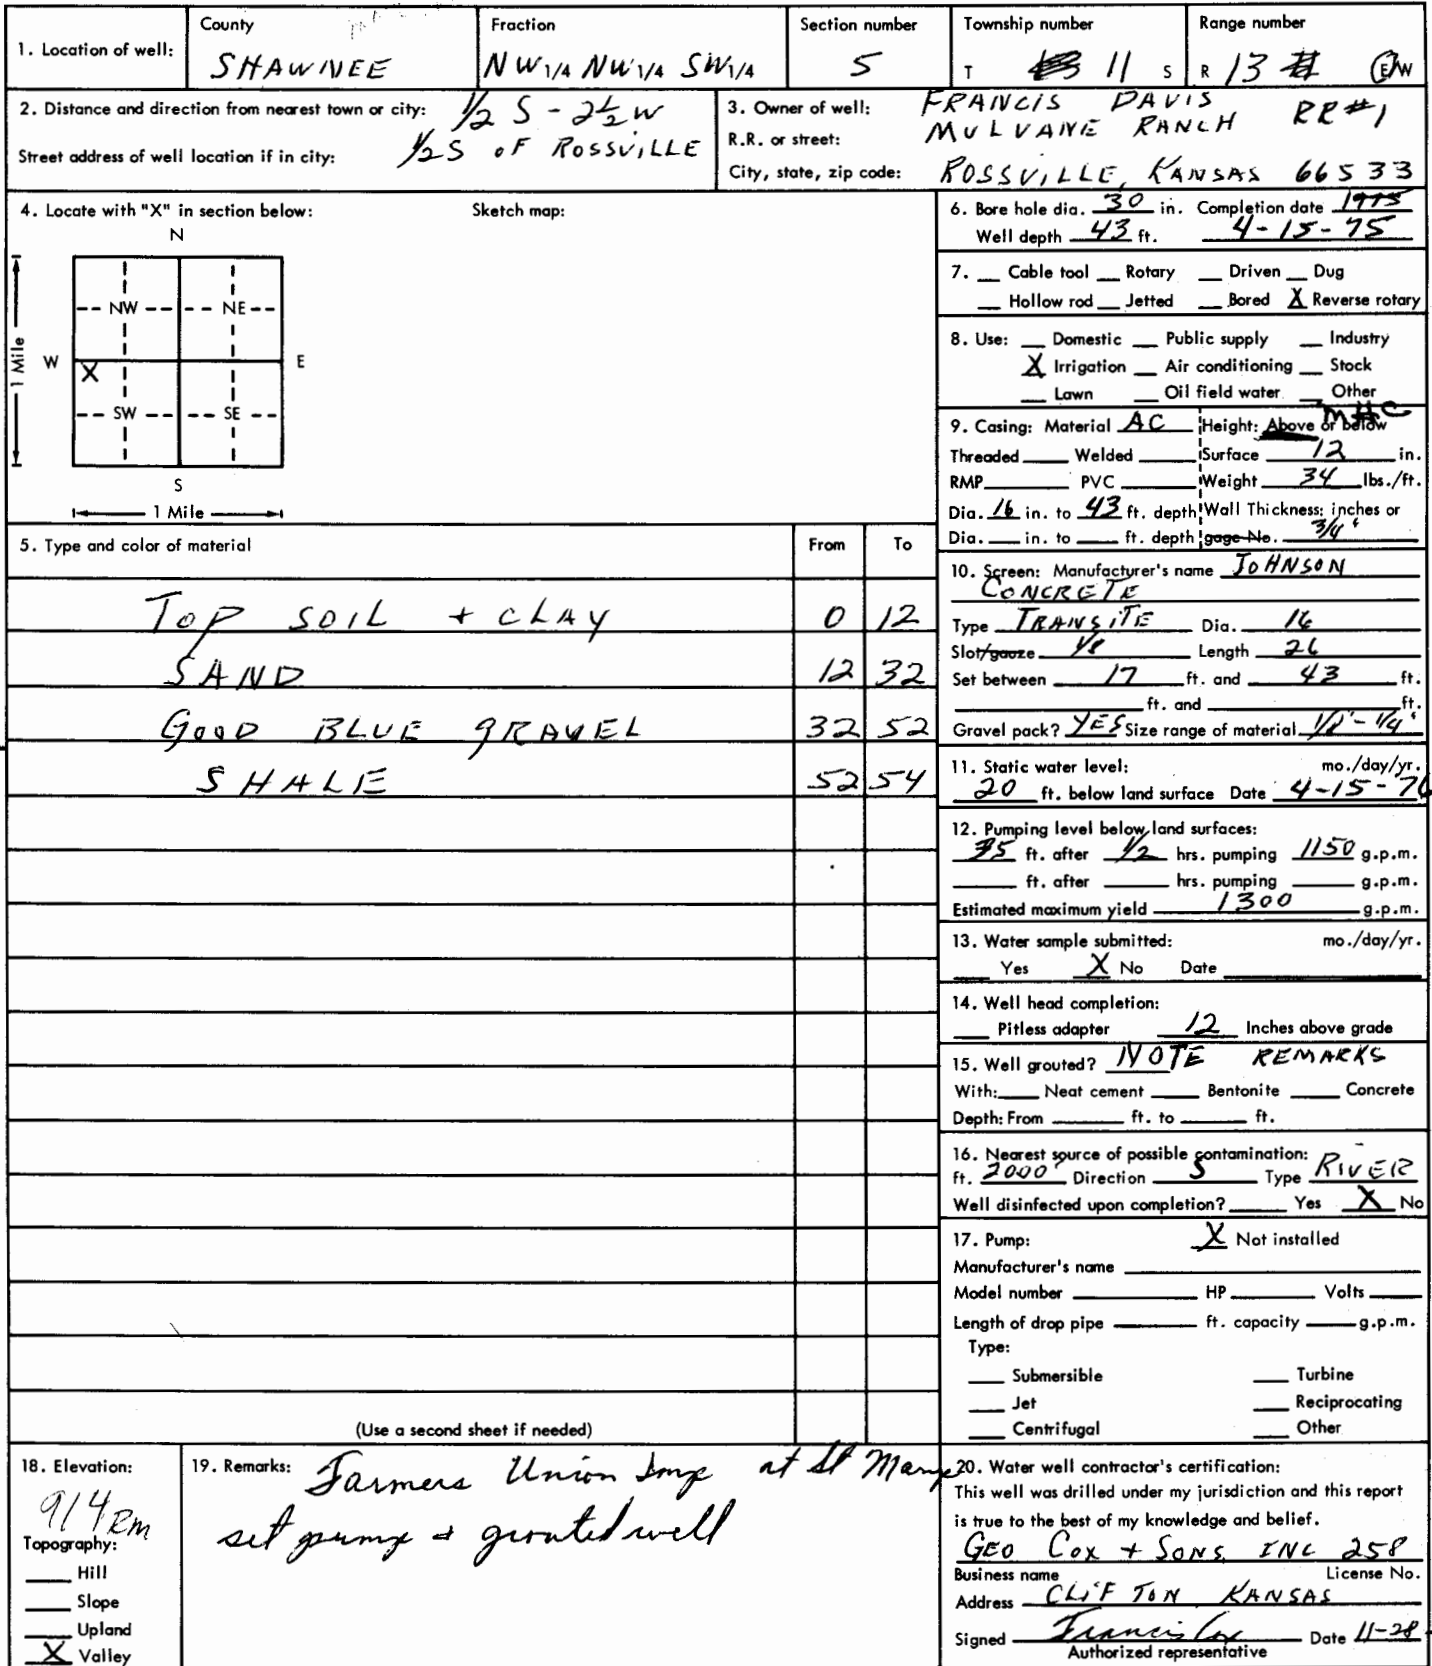 1. Location of well: County SHAWNEE Fraction NW 1/4 NW 1/4 SW 1/4 Section number 5 Township number T 11 S Range number R 13 E/W
2. Distance and direction from nearest town or city: 1/2 S - 2 1/2 W
Street address of well location if in city: 1/2 S OF ROSSVILLE
3. Owner of well: FRANCIS DAVIS
R.R. or street: MULVANE RANCH RR#1
City, state, zip code: ROSSVILLE, KANSAS 66533
4. Locate with "X" in section below: Sketch map:
N
NW NE
W X E
SW SE
S
1 Mile
1 Mile
5. Type and color of material From To
TOP SOIL + CLAY 0 12
SAND 12 32
GOOD BLUE GRAVEL 32 52
SHALE 52 54
(Use a second sheet if needed)
6. Bore hole dia. 30 in. Completion date 1975
Well depth 43 ft. 4-15-75
7. Cable tool Rotary Driven Dug
Hollow rod Jetted Bored X Reverse rotary
8. Use: Domestic Public supply Industry
X Irrigation Air conditioning Stock
Lawn Oil field water Other
MHC
9. Casing: Material AC Height: Above or below
Threaded Welded Surface 12 in.
RMP PVC Weight 34 lbs./ft.
Dia. 16 in. to 43 ft. depth Wall Thickness: inches or
Dia. in. to ft. depth gage No. 3/4"
10. Screen: Manufacturer's name JOHNSON
CONCRETE
Type TRANSITE Dia. 16
Slot/gauze 1/8 Length 26
Set between 17 ft. and 43 ft.
ft. and ft.
Gravel pack? YES Size range of material 1/8" - 1/4"
11. Static water level: mo./day/yr.
20 ft. below land surface Date 4-15-76
12. Pumping level below land surfaces:
35 ft. after 1/2 hrs. pumping 1150 g.p.m.
ft. after hrs. pumping g.p.m.
Estimated maximum yield 1300 g.p.m.
13. Water sample submitted: mo./day/yr.
Yes X No Date
14. Well head completion:
Pitless adapter 12 Inches above grade
15. Well grouted? NOTE REMARKS
With: Neat cement Bentonite Concrete
Depth: From ft. to ft.
16. Nearest source of possible contamination:
ft. 2000 Direction S Type RIVER
Well disinfected upon completion? Yes X No
17. Pump: X Not installed
Manufacturer's name
Model number HP Volts
Length of drop pipe ft. capacity g.p.m.
Type:
Submersible Turbine
Jet Reciprocating
Centrifugal Other
18. Elevation:
914 Rm
Topography:
Hill
Slope
Upland
X Valley
19. Remarks: Farmers Union Imp at St Marys
set pump & grouted well
20. Water well contractor's certification:
This well was drilled under my jurisdiction and this report
is true to the best of my knowledge and belief.
GEO COX + SONS, INC 258
Business name License No.
Address CLIFTON KANSAS
Signed Francis Cox Date 11-28
Authorized representative